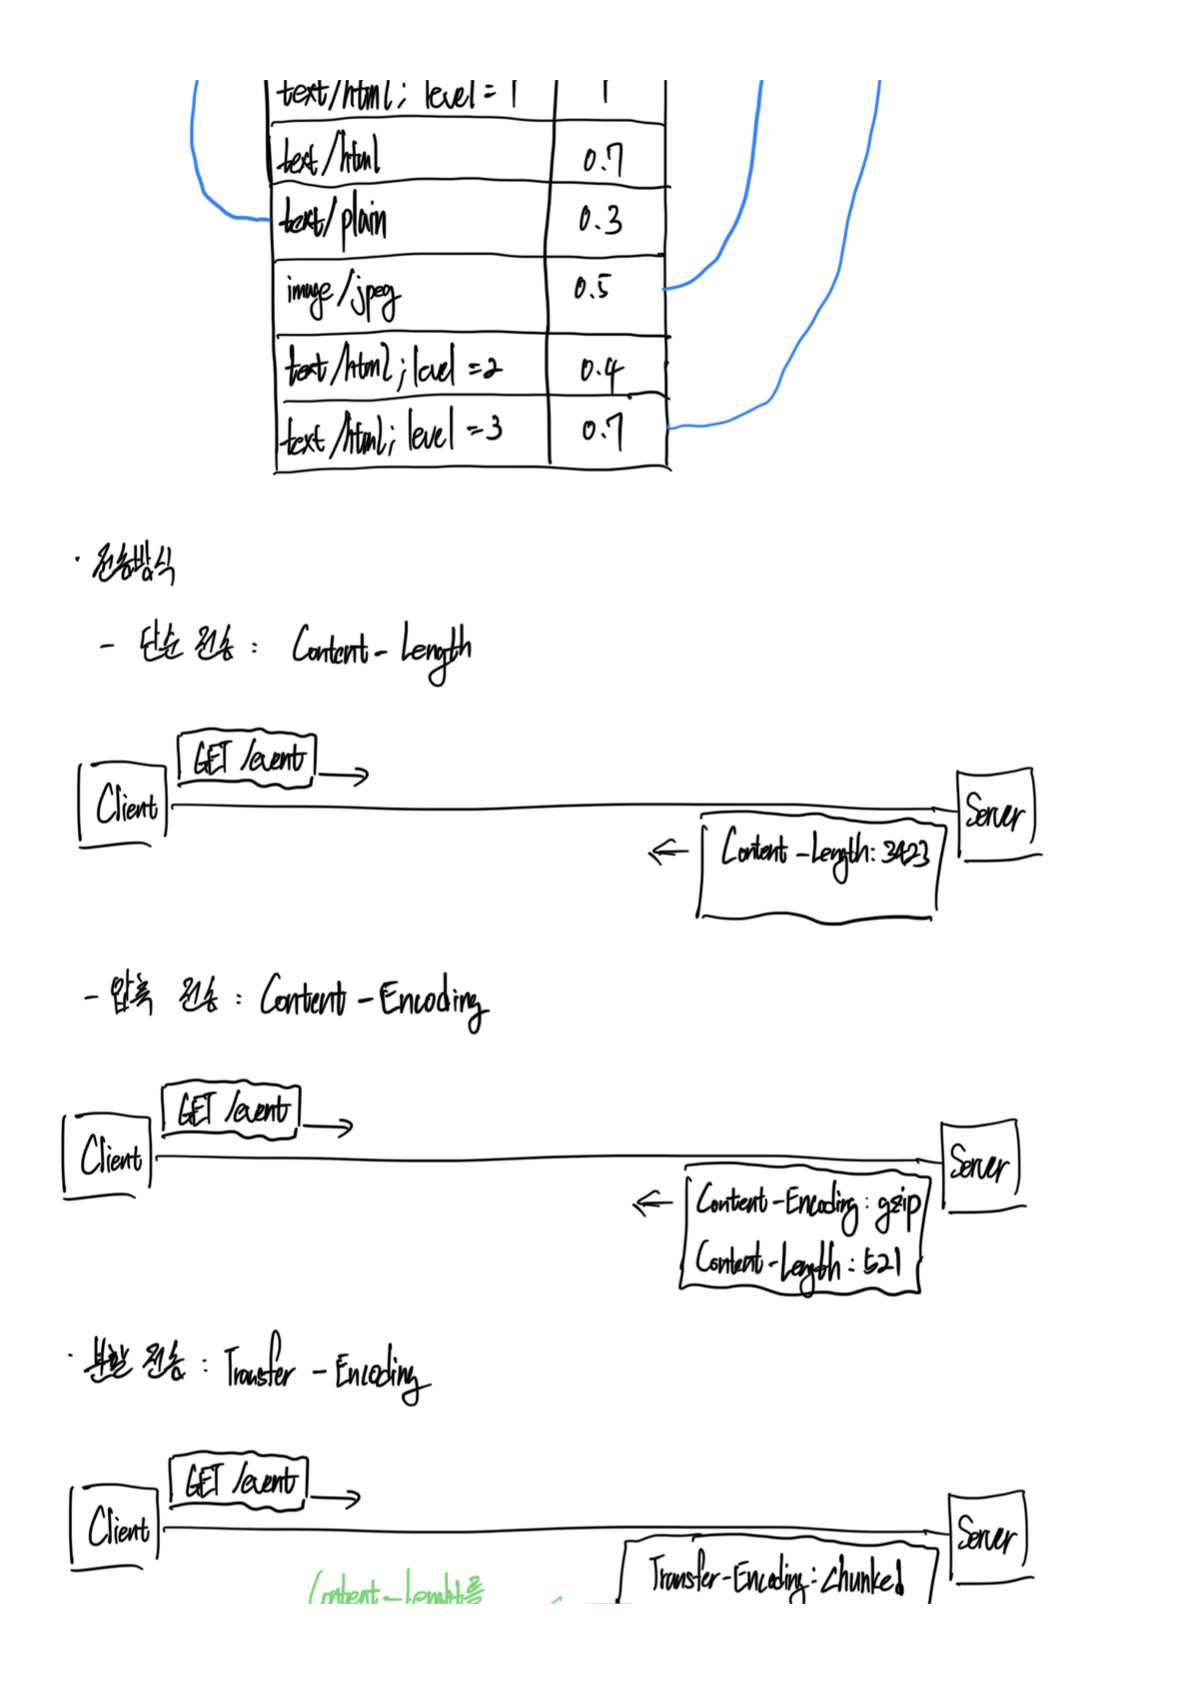 text/html; level=1 1
text/html 0.7
text/plain 0.3
image/jpeg 0.5
text/html; level=2 0.4
text/html; level=3 0.7
· 전송방식
- 단순 전송 : Content-Length
GET /event
Client
Server
Content-Length: 3423
- 압축 전송 : Content-Encoding
GET /event
Client
Server
Content-Encoding: gzip
Content-Length: 521
· 분할 전송 : Transfer-Encoding
GET /event
Client
Server
Transfer-Encoding: chunked
Content-Lenght를